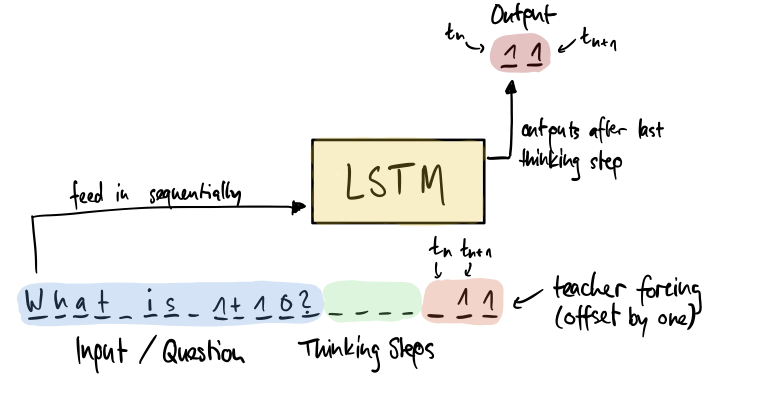 Output
tn
tn+1
1 1
outputs after last
thinking step
LSTM
feed in sequentially
tn tn+1
What is 1+10?
1 1
teacher forcing
(offset by one)
Input / Question
Thinking Steps